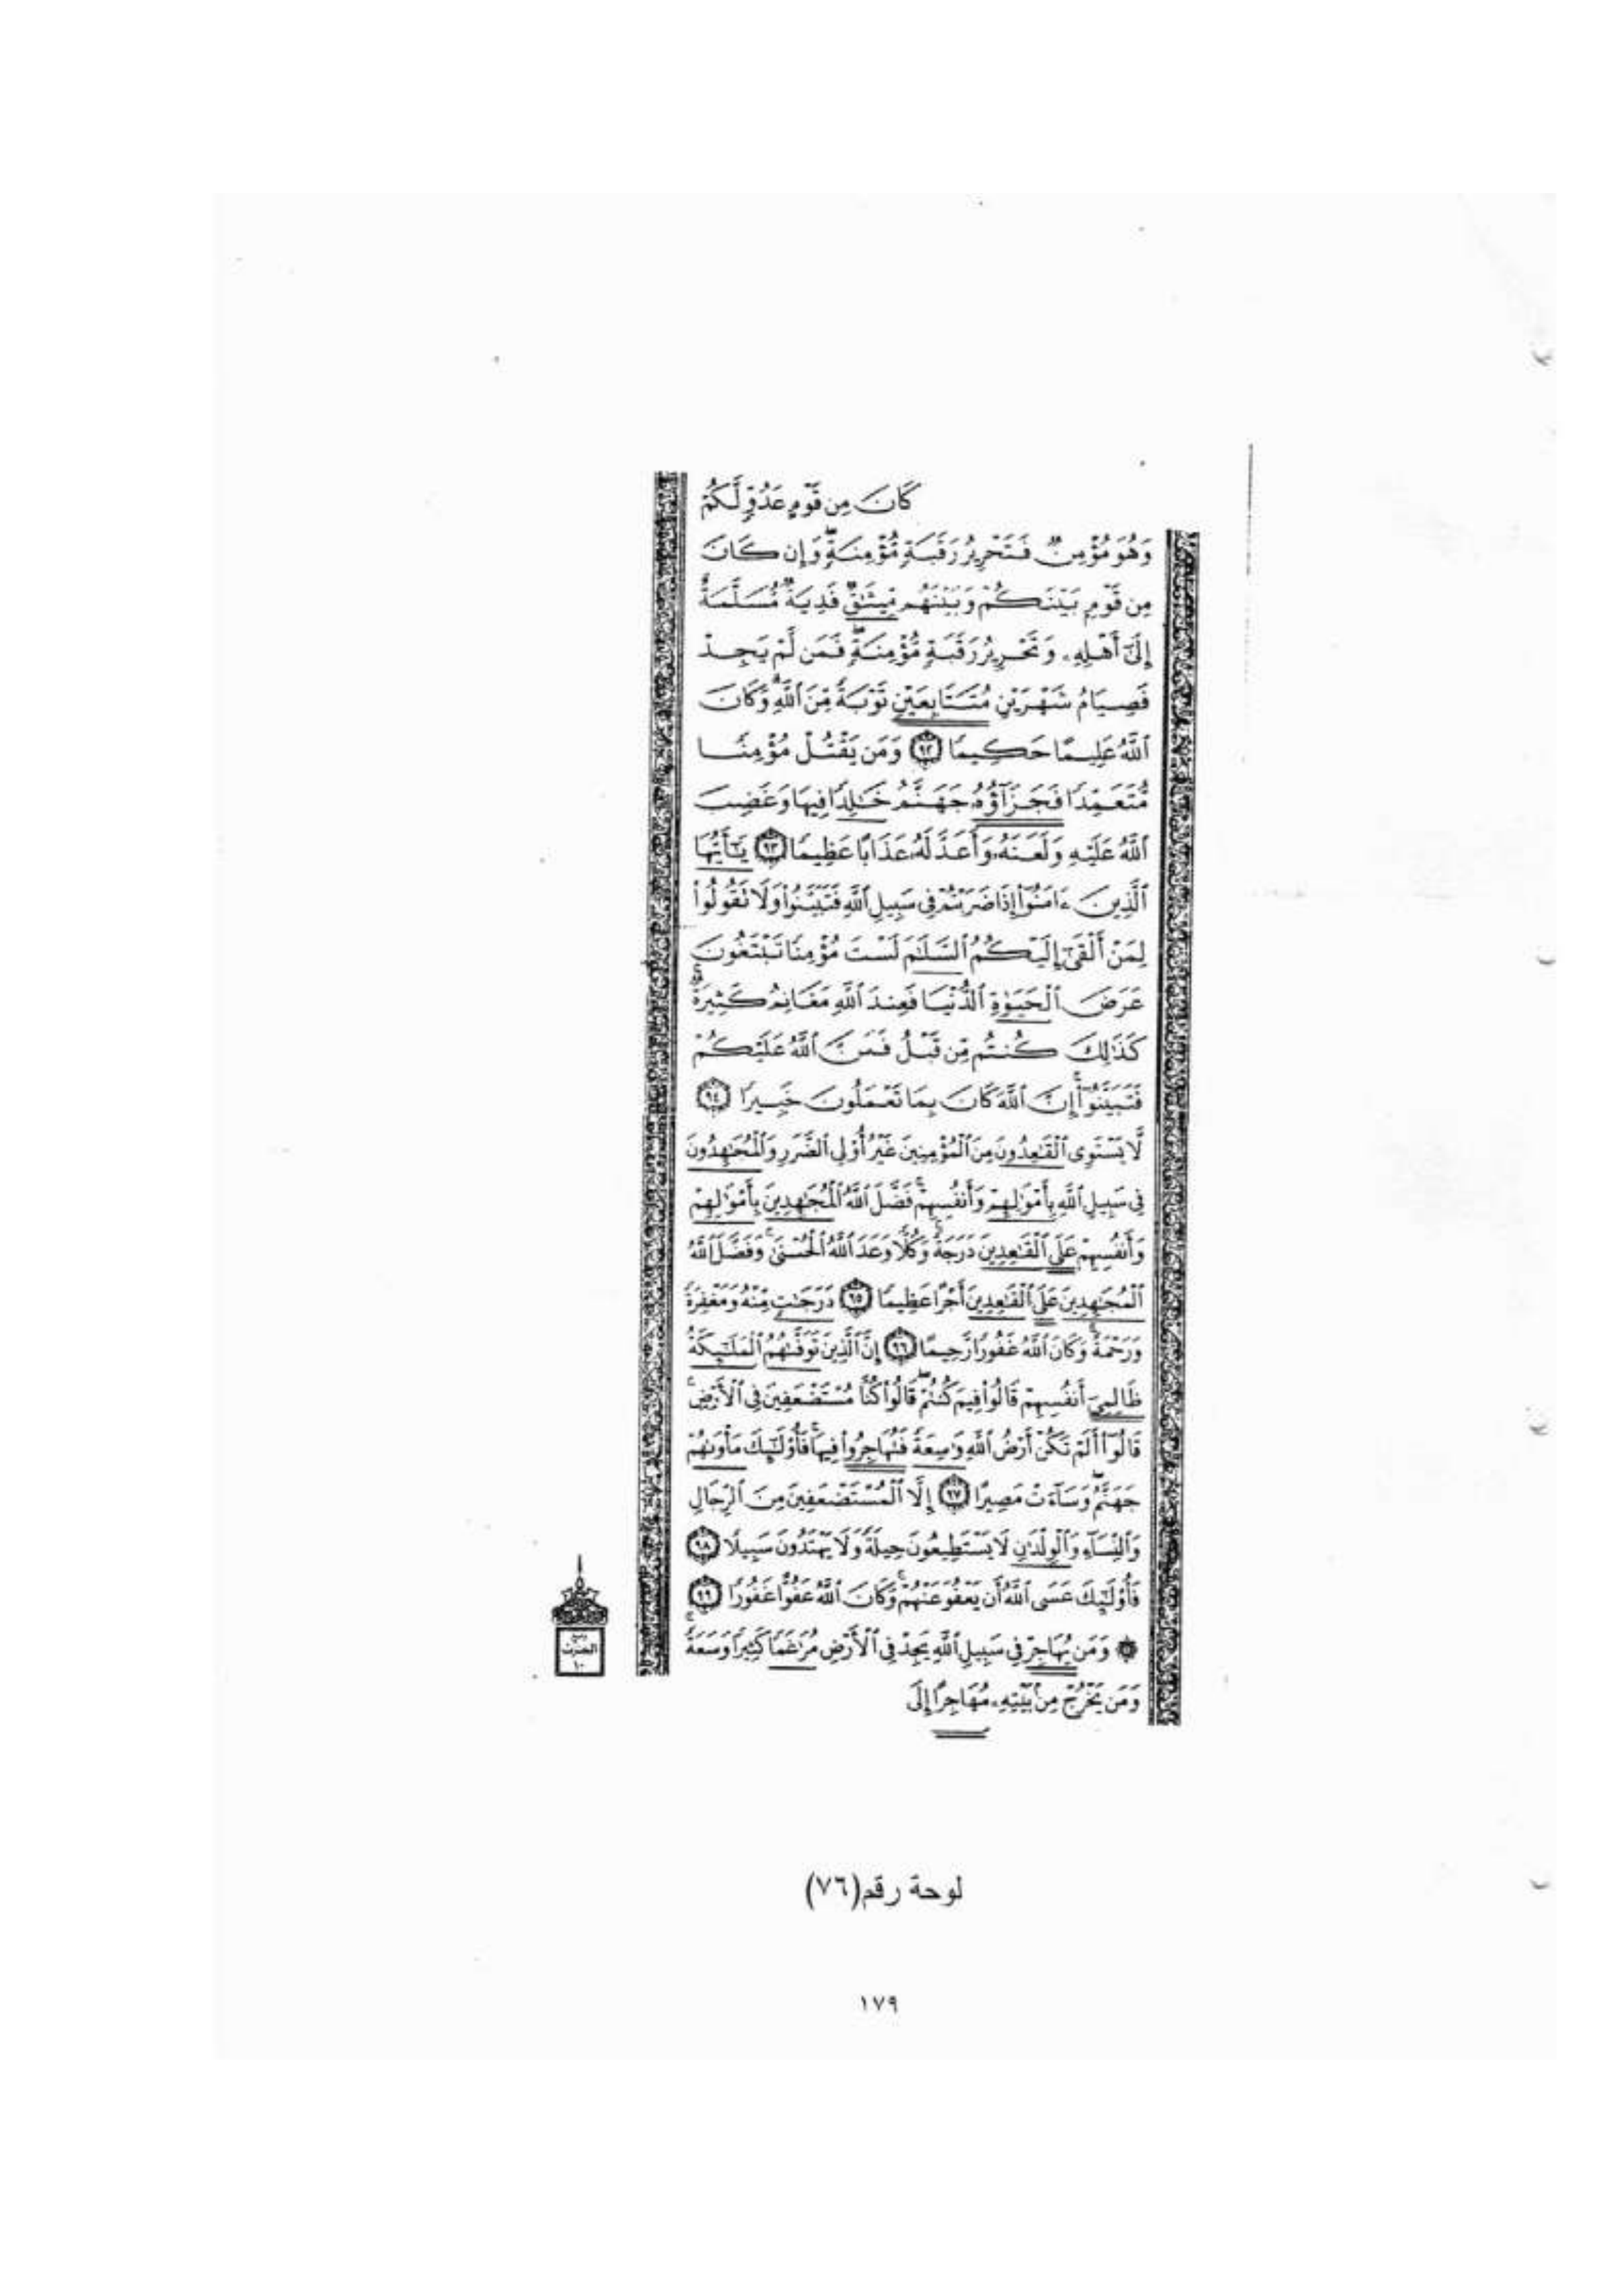 كَانَ مِن قَوْمٍ عَدُوٍّ لَّكُمْ
وَهُوَ مُؤْمِنٌ فَتَحْرِيرُ رَقَبَةٍ مُّؤْمِنَةٍ ۖ وَإِن كَانَ
مِن قَوْمٍ بَيْنَكُمْ وَبَيْنَهُم مِّيثَٰقٌ فَدِيَةٌ مُّسَلَّمَةٌ
إِلَىٰٓ أَهْلِهِۦ وَتَحْرِيرُ رَقَبَةٍ مُّؤْمِنَةٍ ۖ فَمَن لَّمْ يَجِدْ
فَصِيَامُ شَهْرَيْنِ مُتَتَابِعَيْنِ تَوْبَةً مِّنَ ٱللَّهِ ۗ وَكَانَ
ٱللَّهُ عَلِيمًا حَكِيمًا ٩٢ وَمَن يَقْتُلْ مُؤْمِنًا
مُّتَعَمِّدًا فَجَزَآؤُهُۥ جَهَنَّمُ خَٰلِدًا فِيهَا وَغَضِبَ
ٱللَّهُ عَلَيْهِ وَلَعَنَهُۥ وَأَعَدَّ لَهُۥ عَذَابًا عَظِيمًا ٩٣ يَٰٓأَيُّهَا
ٱلَّذِينَ ءَامَنُوٓا۟ إِذَا ضَرَبْتُمْ فِى سَبِيلِ ٱللَّهِ فَتَبَيَّنُوا۟ وَلَا تَقُولُوا۟
لِمَنْ أَلْقَىٰٓ إِلَيْكُمُ ٱلسَّلَٰمَ لَسْتَ مُؤْمِنًا تَبْتَغُونَ
عَرَضَ ٱلْحَيَوٰةِ ٱلدُّنْيَا فَعِندَ ٱللَّهِ مَغَانِمُ كَثِيرَةٌ ۚ
كَذَٰلِكَ كُنتُم مِّن قَبْلُ فَمَنَّ ٱللَّهُ عَلَيْكُمْ
فَتَبَيَّنُوٓا۟ ۚ إِنَّ ٱللَّهَ كَانَ بِمَا تَعْمَلُونَ خَبِيرًا ٩٤
لَّا يَسْتَوِى ٱلْقَٰعِدُونَ مِنَ ٱلْمُؤْمِنِينَ غَيْرُ أُو۟لِى ٱلضَّرَرِ وَٱلْمُجَٰهِدُونَ
فِى سَبِيلِ ٱللَّهِ بِأَمْوَٰلِهِمْ وَأَنفُسِهِمْ ۚ فَضَّلَ ٱللَّهُ ٱلْمُجَٰهِدِينَ بِأَمْوَٰلِهِمْ
وَأَنفُسِهِمْ عَلَى ٱلْقَٰعِدِينَ دَرَجَةً ۚ وَكُلًّا وَعَدَ ٱللَّهُ ٱلْحُسْنَىٰ ۚ وَفَضَّلَ ٱللَّهُ
ٱلْمُجَٰهِدِينَ عَلَى ٱلْقَٰعِدِينَ أَجْرًا عَظِيمًا ٩٥ دَرَجَٰتٍ مِّنْهُ وَمَغْفِرَةً
وَرَحْمَةً ۚ وَكَانَ ٱللَّهُ غَفُورًا رَّحِيمًا ٩٦ إِنَّ ٱلَّذِينَ تَوَفَّىٰهُمُ ٱلْمَلَٰٓئِكَةُ
ظَالِمِىٓ أَنفُسِهِمْ قَالُوا۟ فِيمَ كُنتُمْ ۖ قَالُوا۟ كُنَّا مُسْتَضْعَفِينَ فِى ٱلْأَرْضِ ۚ
قَالُوٓا۟ أَلَمْ تَكُنْ أَرْضُ ٱللَّهِ وَٰسِعَةً فَتُهَاجِرُوا۟ فِيهَا ۚ فَأُو۟لَٰٓئِكَ مَأْوَىٰهُمْ
جَهَنَّمُ ۖ وَسَآءَتْ مَصِيرًا ٩٧ إِلَّا ٱلْمُسْتَضْعَفِينَ مِنَ ٱلرِّجَالِ
وَٱلنِّسَآءِ وَٱلْوِلْدَٰنِ لَا يَسْتَطِيعُونَ حِيلَةً وَلَا يَهْتَدُونَ سَبِيلًا ٩٨
فَأُو۟لَٰٓئِكَ عَسَى ٱللَّهُ أَن يَعْفُوَ عَنْهُمْ ۚ وَكَانَ ٱللَّهُ عَفُوًّا غَفُورًا ٩٩
۞ وَمَن يُهَاجِرْ فِى سَبِيلِ ٱللَّهِ يَجِدْ فِى ٱلْأَرْضِ مُرَٰغَمًا كَثِيرًا وَسَعَةً ۚ
وَمَن يَخْرُجْ مِنۢ بَيْتِهِۦ مُهَاجِرًا إِلَى
ربع
الحزب
١٠
لوحة رقم(٧٦)
١٧٩